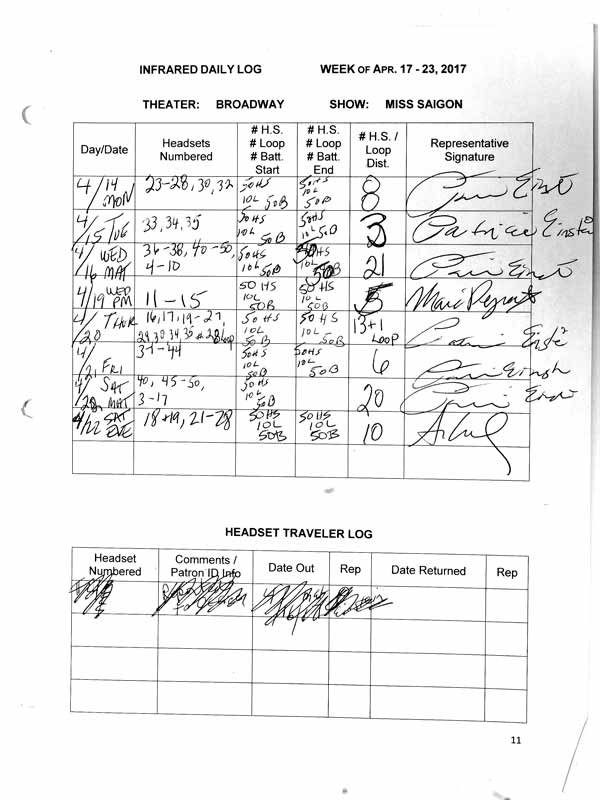 INFRARED DAILY LOG WEEK OF APR. 17 - 23, 2017
THEATER: BROADWAY SHOW: MISS SAIGON
Day/Date Headsets Numbered # H.S. # Loop # Batt. Start # H.S. # Loop # Batt. End # H.S. / Loop Dist. Representative Signature
4/14 MON 23-28, 30, 32 50HS 10L 50B 50HS 10L 50B 8
4/15 TUE 33, 34, 35 50HS 10L 50B 50HS 10L 50B 3 Patricia Einstein
4/16 WED MAT 36-38, 40-50, 4-10 50HS 10L 50B 50HS 10L 50B 21
4/19 WED PM 11-15 50 HS 10L 50B 50 HS 10L 50B 5
4/20 THUR 16, 17, 19-27, 50 HS 10L 50B 50 HS 10L 50B 13+1 LOOP
4/21 FRI 50HS 10L 50B 50HS 10L 50B 6
SAT MAT 40, 45-50, 3-17 50HS 10L 50B 20
4/22 SAT EVE 18+19, 21-28 50HS 10L 50B 50HS 10L 50B 10
HEADSET TRAVELER LOG
Headset Numbered Comments / Patron ID Info Date Out Rep Date Returned Rep
11